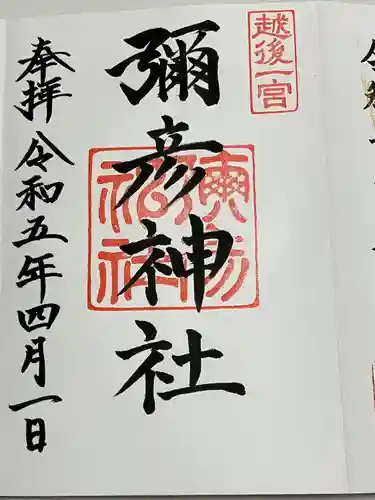 越後一宮
彌彦神社
奉拝 令和五年四月一日